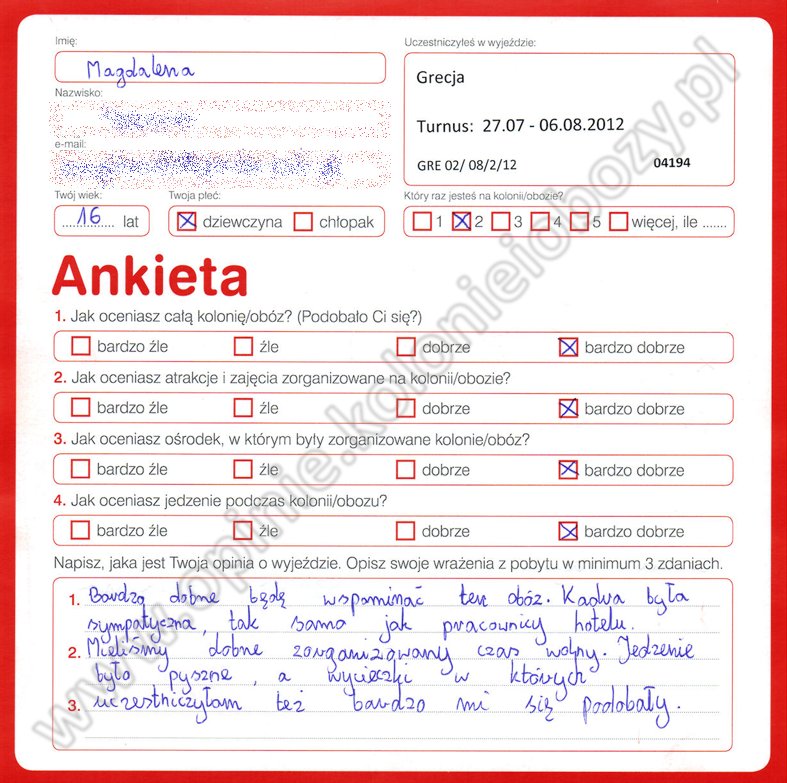 Imię:
Magdalena
Nazwisko:
e-mail:
Twój wiek:
16 lat
Twoja płeć:
dziewczyna chłopak
Uczestniczyłeś w wyjeździe:
Grecja
Turnus: 27.07 - 06.08.2012
GRE 02/ 08/2/12 04194
Który raz jesteś na kolonii/obozie?
1 2 3 4 5 więcej, ile .......
Ankieta
1. Jak oceniasz całą kolonię/obóz? (Podobało Ci się?)
bardzo źle źle dobrze bardzo dobrze
2. Jak oceniasz atrakcje i zajęcia zorganizowane na kolonii/obozie?
bardzo źle źle dobrze bardzo dobrze
3. Jak oceniasz ośrodek, w którym były zorganizowane kolonie/obóz?
bardzo źle źle dobrze bardzo dobrze
4. Jak oceniasz jedzenie podczas kolonii/obozu?
bardzo źle źle dobrze bardzo dobrze
Napisz, jaka jest Twoja opinia o wyjeździe. Opisz swoje wrażenia z pobytu w minimum 3 zdaniach.
1. Bardzo dobrze będę wspominać ten obóz. Kadra była
sympatyczna, tak samo jak pracownicy hotelu.
2. Mieliśmy dobrze zorganizowany czas wolny. Jedzenie
było pyszne, a wycieczki w których
3. uczestniczyłam też bardzo mi się podobały.
www.opinie.kolonieiobozy.pl